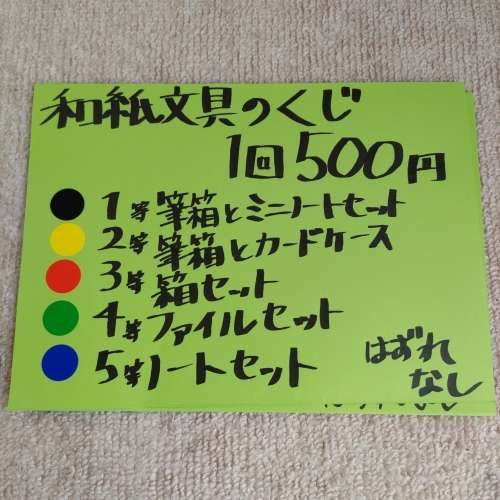 和紙文具のくじ
1回500円
1等 筆箱とミニノートセット
2等 筆箱とカードケース
3等 箱セット
4等 ファイルセット
5等 ノートセット
はずれ
なし